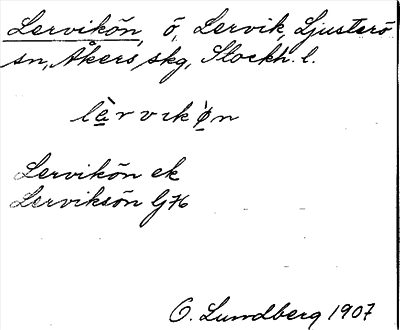 Lervikön, ö, Lervik, Ljusterö
sn, Åkers skg, Stockh. l.
là̱rvik'ø̱n
Lervikön ek
Lerviksön GK
O. Lundberg 1907